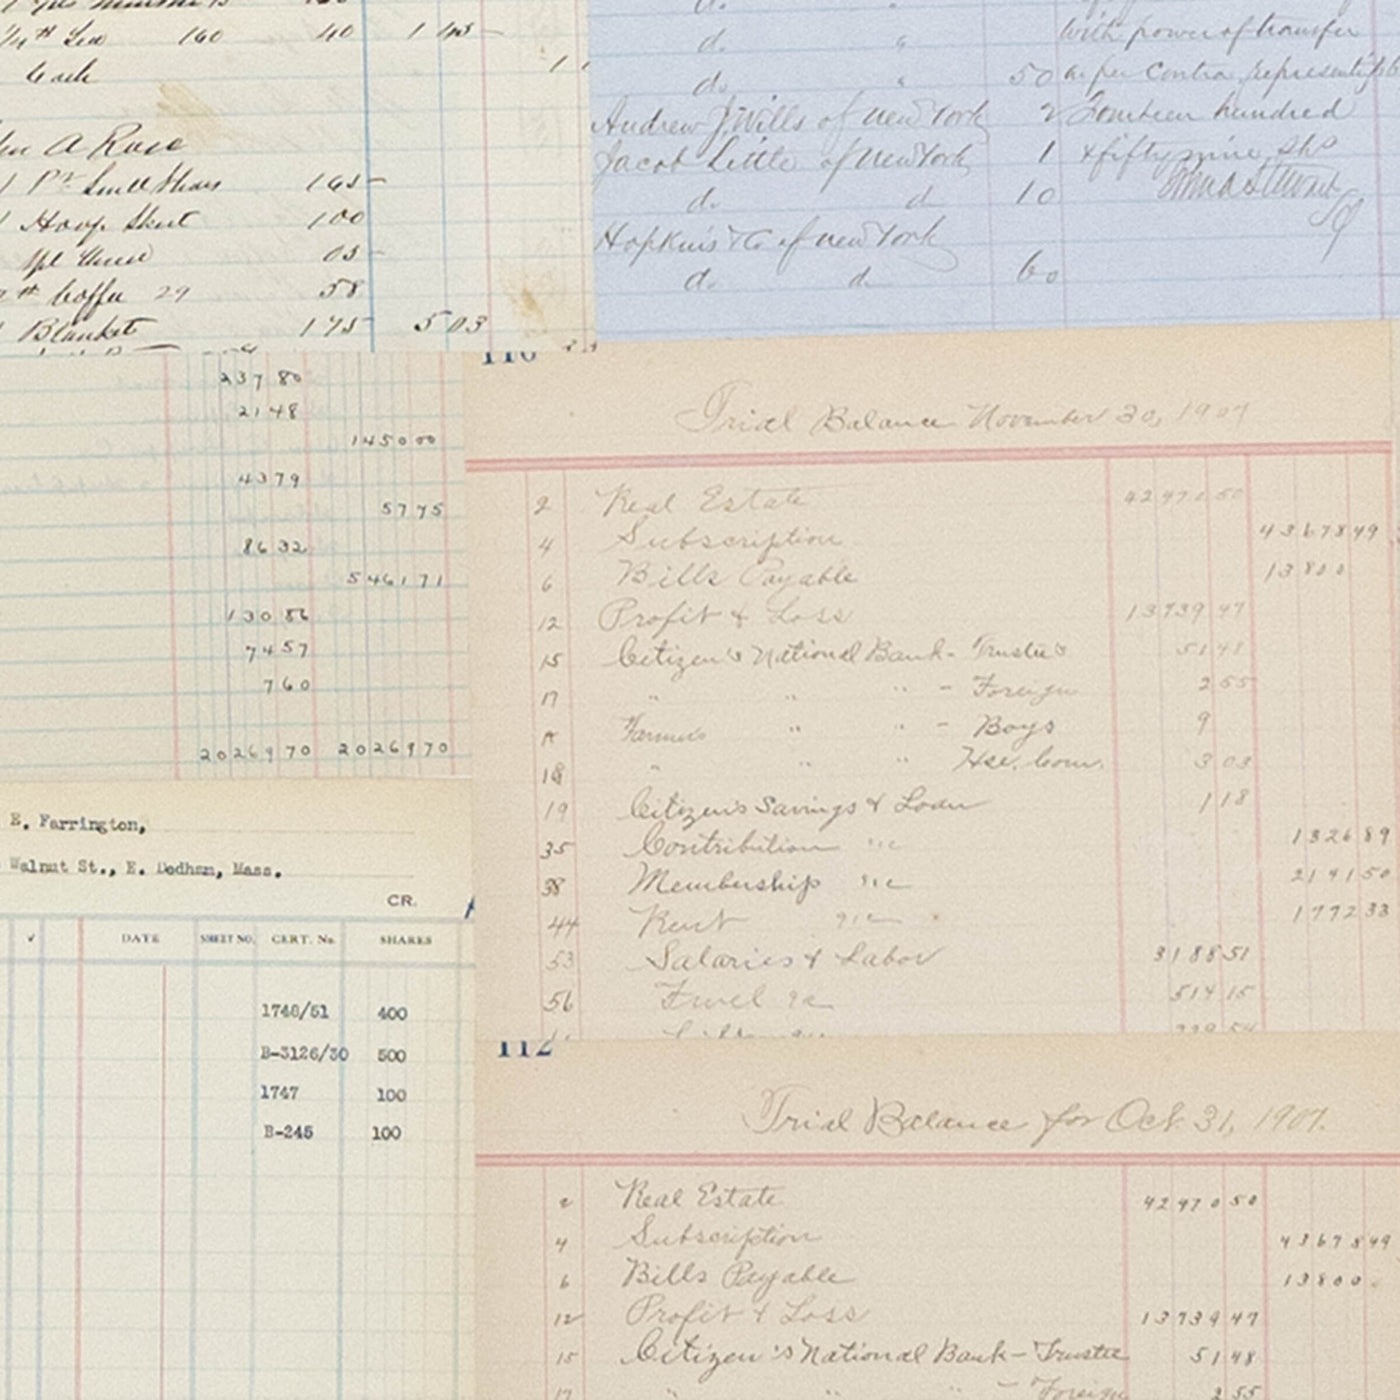 4th Sea 160 40 1 40
Cash
A Rose
1 Pr Small Shears 165
1 Hoop Skirt 100
Spl Thread 05
Coffee 29 58
1 Blanket 175 5 03
d. "
d. " with power of transfer
d. " 50 as per Contra representing
Andrew J Wills of New York 2 Fourteen hundred
Jacob Little of New York 1 & fifty nine shs
d. d 10
Hopkins & Co of New York
d. d. 60
237 80
21 48
1450 00
43 79
57 75
86 32
5461 71
130 86
74 57
7 60
20269 70 20269 70
E. Farrington,
Walnut St., E. Dedham, Mass.
CR.
✓ DATE SHEET NO. CERT. No. SHARES
1748/51 400
B-3126/30 500
1747 100
B-245 100
110
Trial Balance November 30, 1907
2 Real Estate 42970 50
4 Subscription 43678 49
6 Bills Payable 13800
12 Profit & Loss 13739 47
15 Citizen's National Bank - Trustee's 51 48
17 " " " - Foreign 2 55
Farmers " " - Boys 9
18 " " " Hse. Com. 3 03
19 Citizen's Savings & Loan 1 18
35 Contribution a/c 1326 89
38 Membership a/c 2141 50
44 Rent a/c 1772 33
53 Salaries & Labor 3188 51
56 Fuel a/c 514 15
112
Trial Balance for Oct. 31, 1907.
2 Real Estate 42970 50
4 Subscription 43678 49
6 Bills Payable 13800
12 Profit & Loss 13739 47
15 Citizen's National Bank - Trustee 51 48
17 " " " - Foreign 2 55